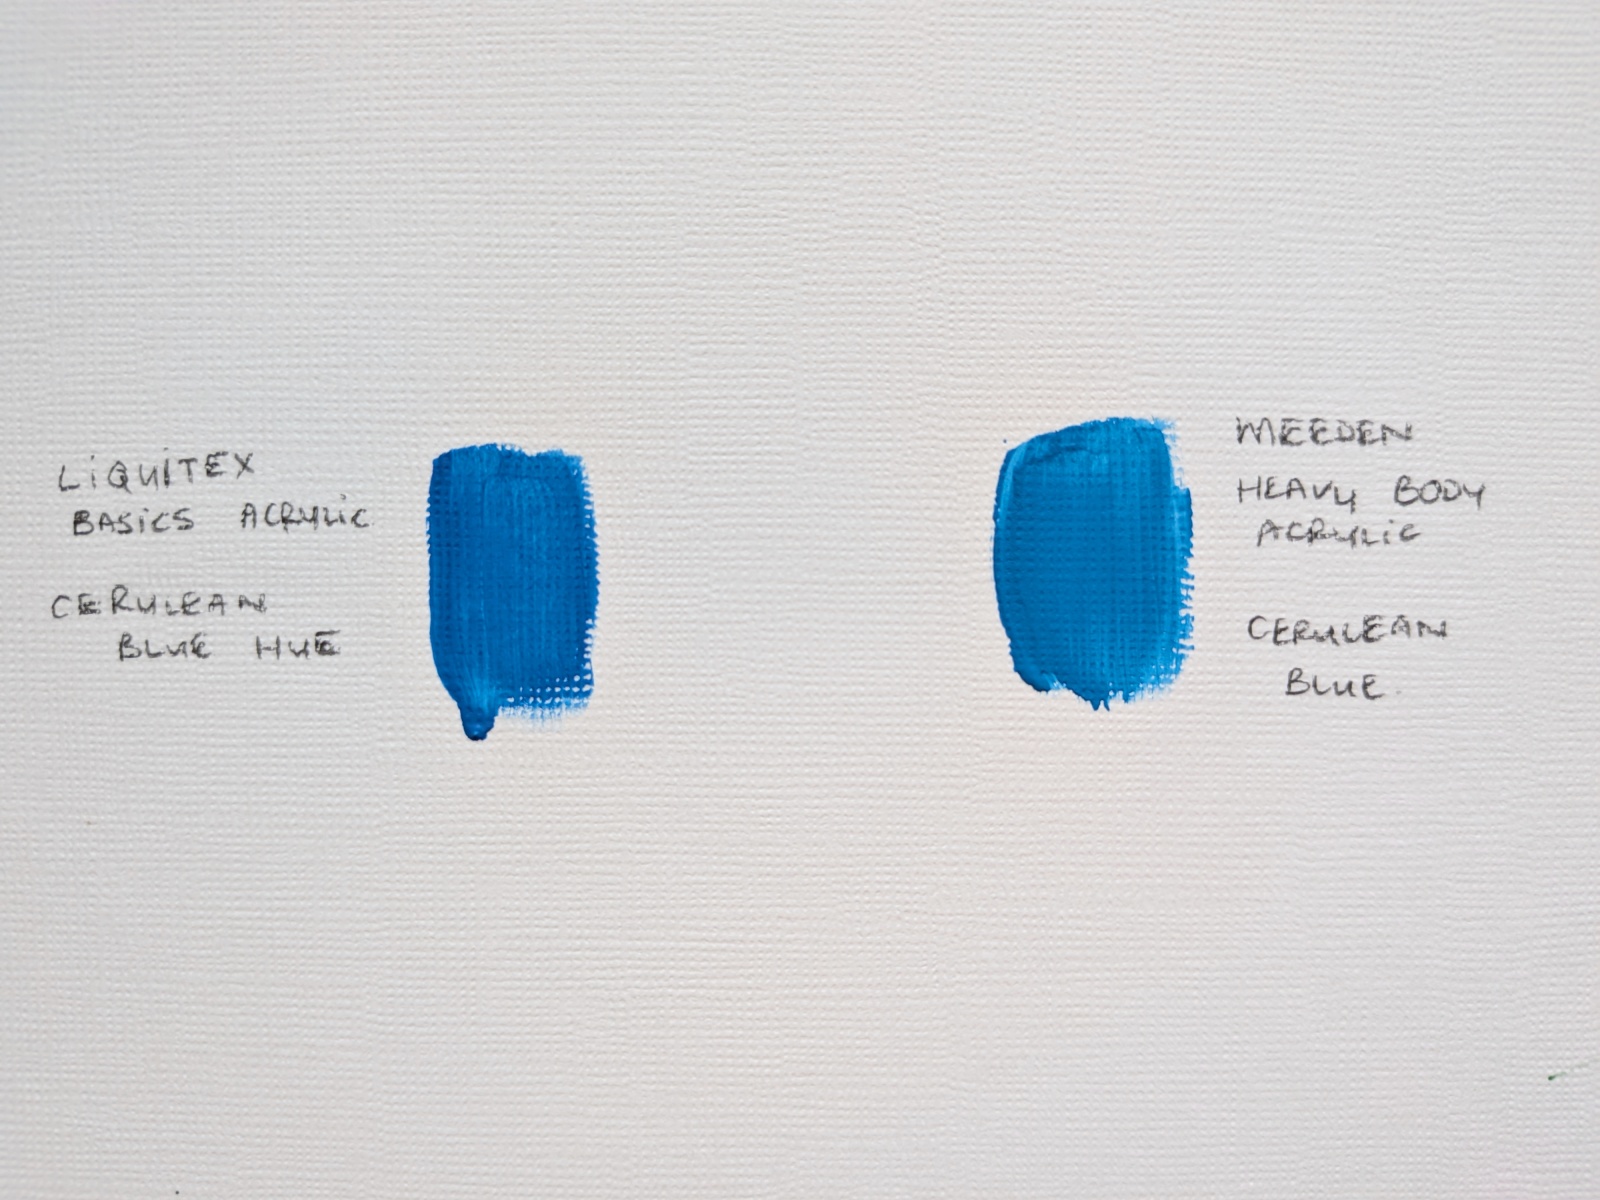 LIQUITEX
BASICS ACRYLIC
CERULEAN
BLUE HUE
MEEDEN
HEAVY BODY
ACRYLIC
CERULEAN
BLUE.